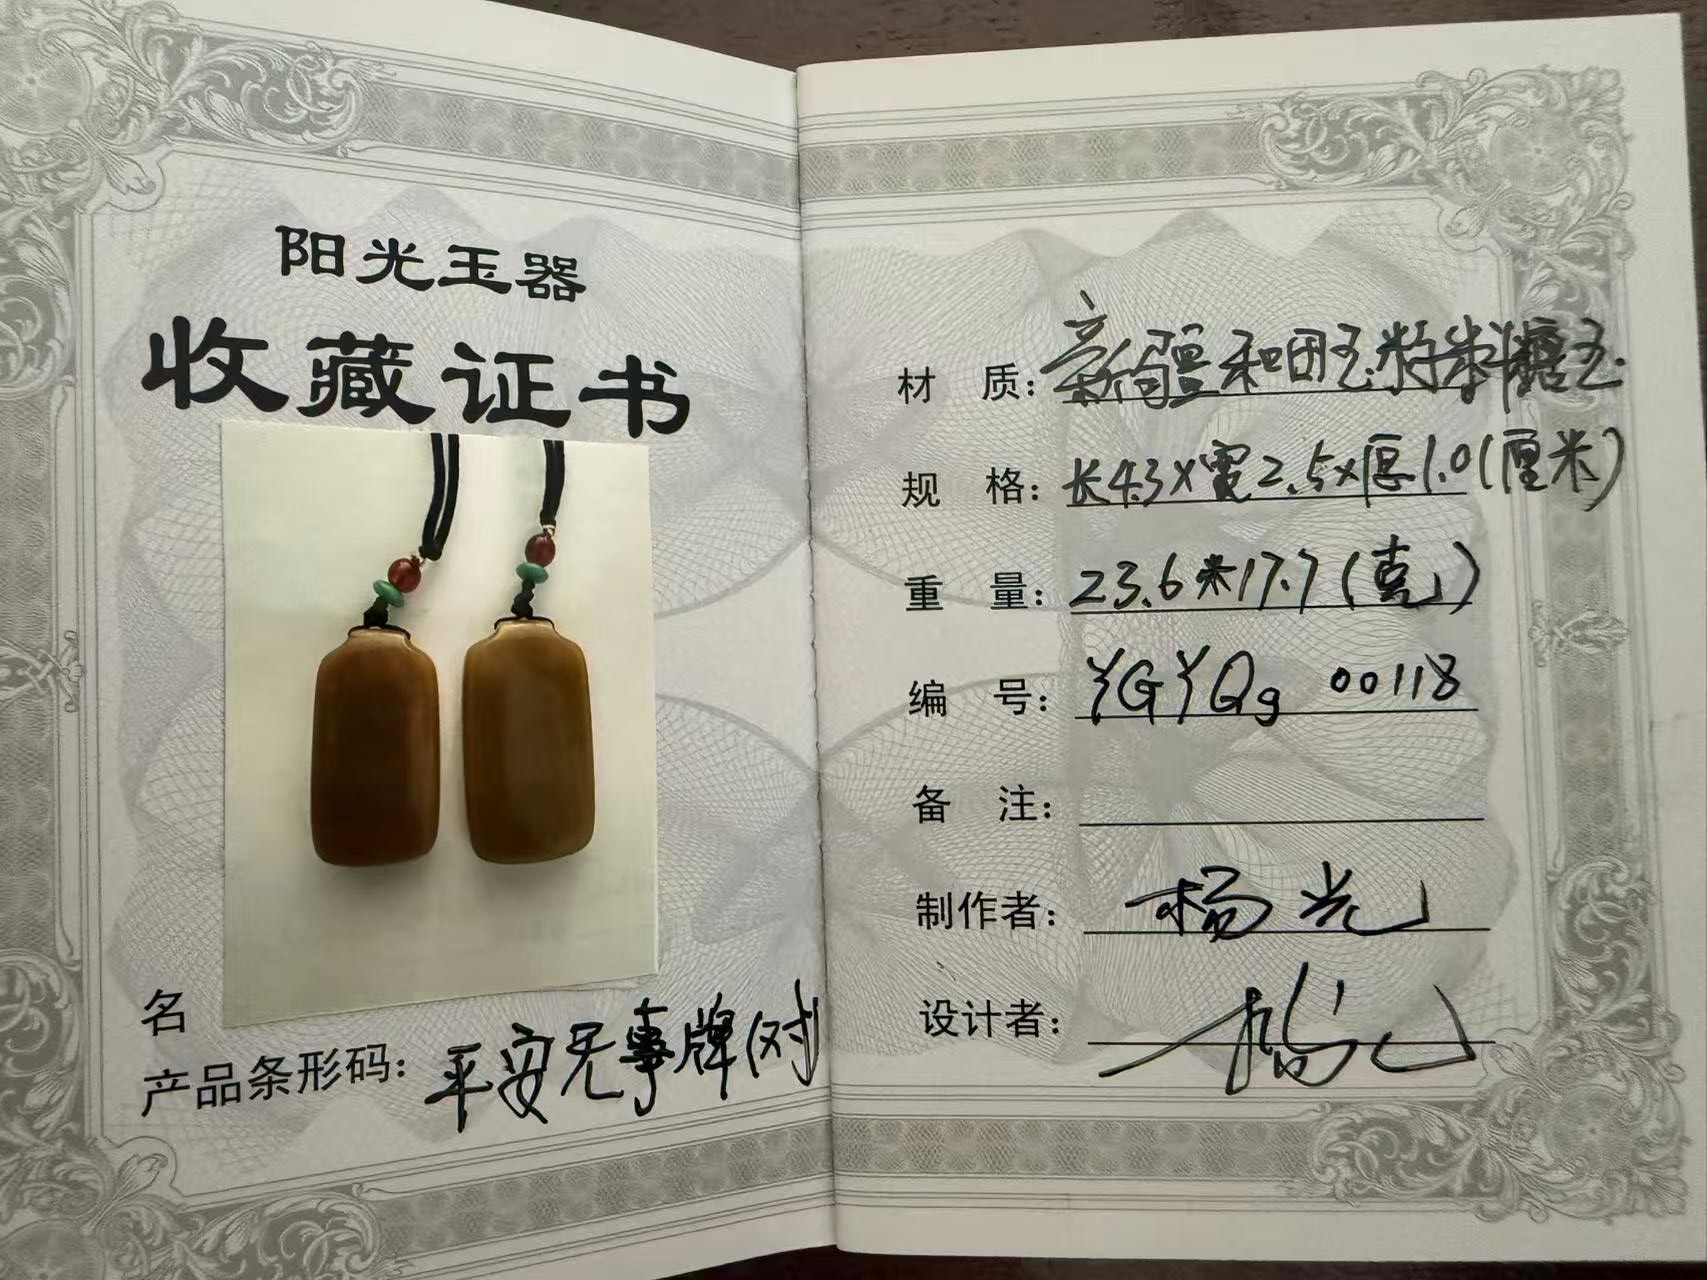 阳光玉器
收藏证书
名
产品条形码：平安无事牌(对
材 质：新疆和田玉籽料糖玉
规 格：长4.3×宽2.5×厚1.0(厘米)
重 量：23.6米17.7(克)
编 号：YGYQg 00118
备 注：
制作者：杨光
设计者：杨光